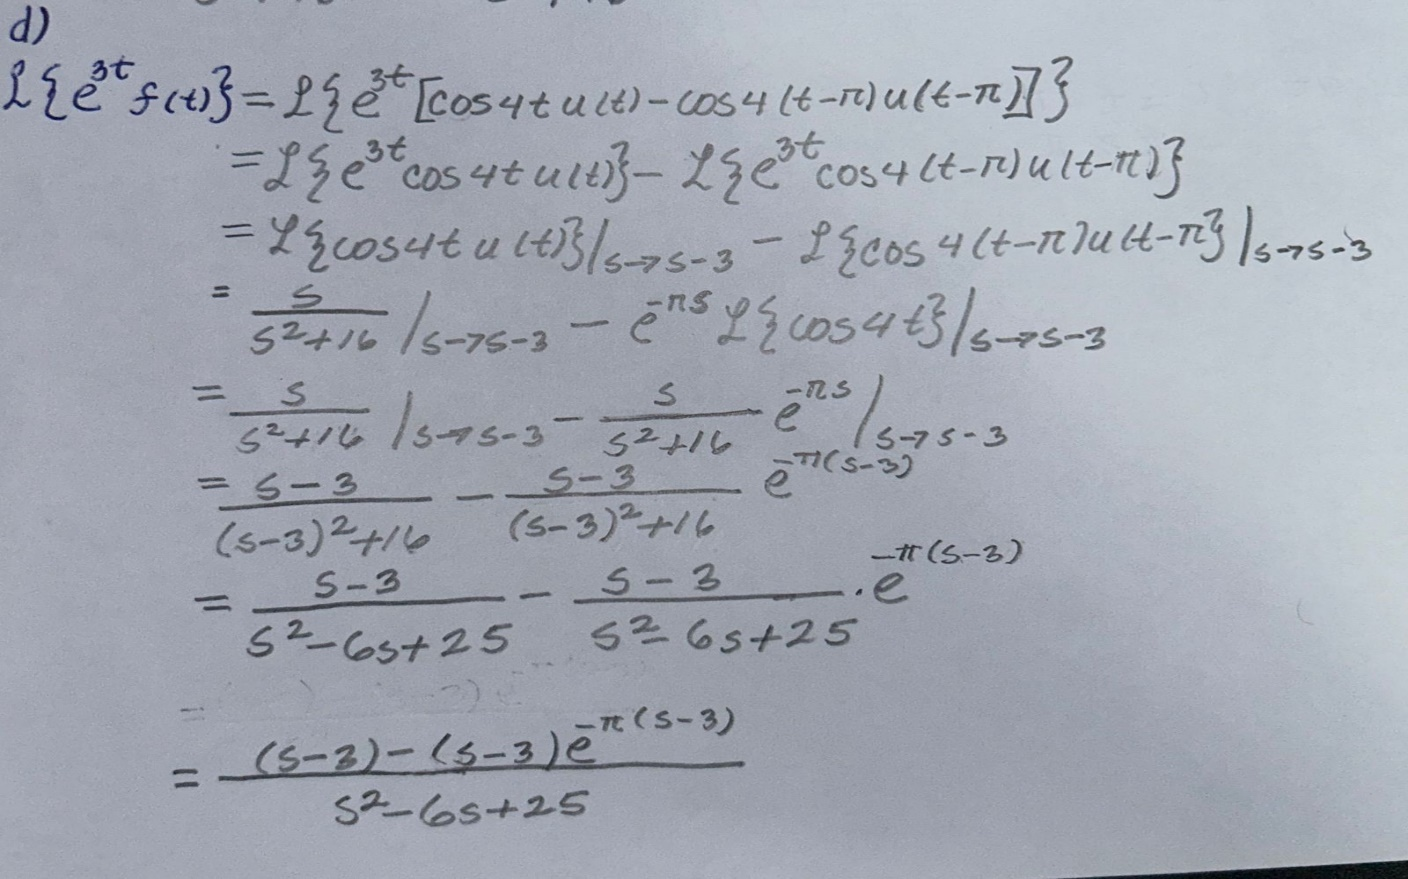 d)
ℒ{e^{3t} f(t)} = ℒ{e^{3t} [cos4t u(t) - cos4(t-π)u(t-π)]}
= ℒ{e^{3t} cos4t u(t)} - ℒ{e^{3t} cos4(t-π)u(t-π)}
= ℒ{cos4t u(t)}|_{s→s-3} - ℒ{cos4(t-π)u(t-π}|_{s→s-3}
= \frac{s}{s^2+16} |_{s→s-3} - e^{-πs} ℒ{cos4t}|_{s→s-3}
= \frac{s}{s^2+16} |_{s→s-3} - \frac{s}{s^2+16} e^{-πs} |_{s→s-3}
= \frac{s-3}{(s-3)^2+16} - \frac{s-3}{(s-3)^2+16} e^{-π(s-3)}
= \frac{s-3}{s^2-6s+25} - \frac{s-3}{s^2-6s+25} · e^{-π(s-3)}
= \frac{(s-3)-(s-3)e^{-π(s-3)}}{s^2-6s+25}